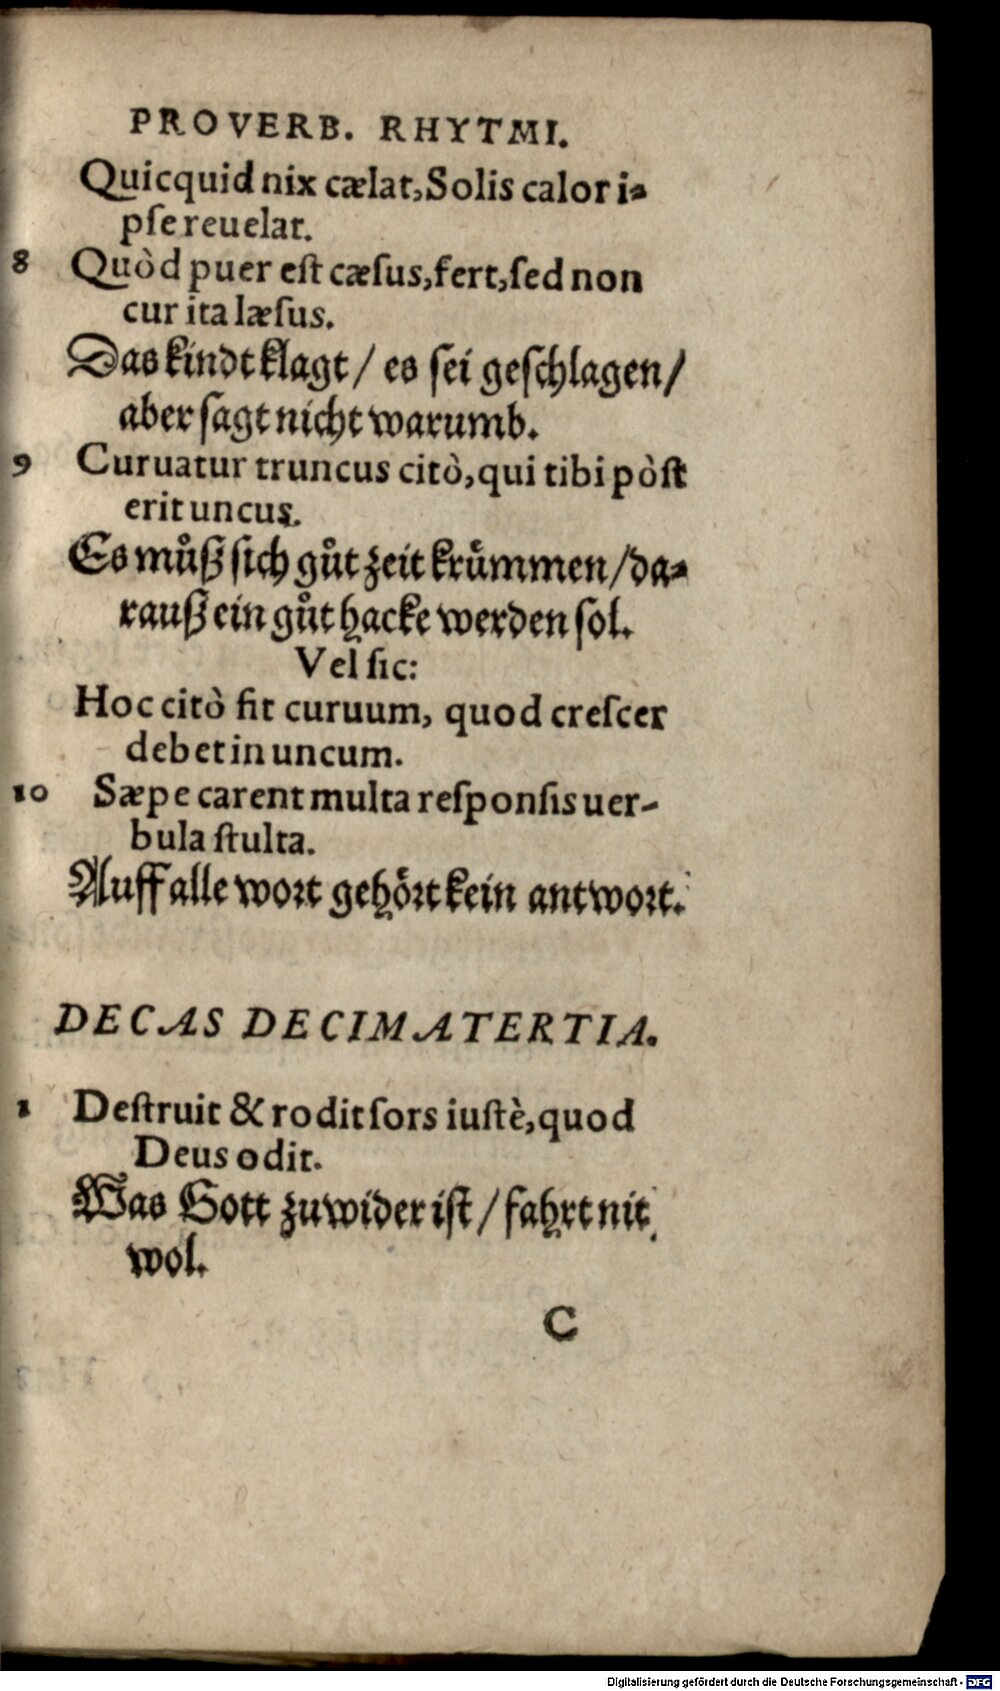 PROVERB. RHYTMI.
Quicquid nix cælat, Solis calor i-
pſe reuelat.
8 Quòd puer eſt cæſus, fert, ſed non
cur ita læſus.
Das kindt klagt / es ſei geſchlagen /
aber ſagt nicht warumb.
9 Curuatur truncus citò, qui tibi pòſt
erit uncus.
Es můß ſich gůt zeit krümmen / da-
rauß ein gůt hacke werden ſol.
Vel ſic:
Hoc citò fit curuum, quod creſcer
debet in uncum.
10 Sæpe carent multa reſponſis uer-
bula ſtulta.
Auff alle wort gehört kein antwort.
DECAS DECIMATERTIA.
1 Deſtruit & rodit ſors iuſtè, quod
Deus odit.
Was Gott zuwider iſt / fahrt nit
wol.
C
Digitalisierung gefördert durch die Deutsche Forschungsgemeinschaft - DFG